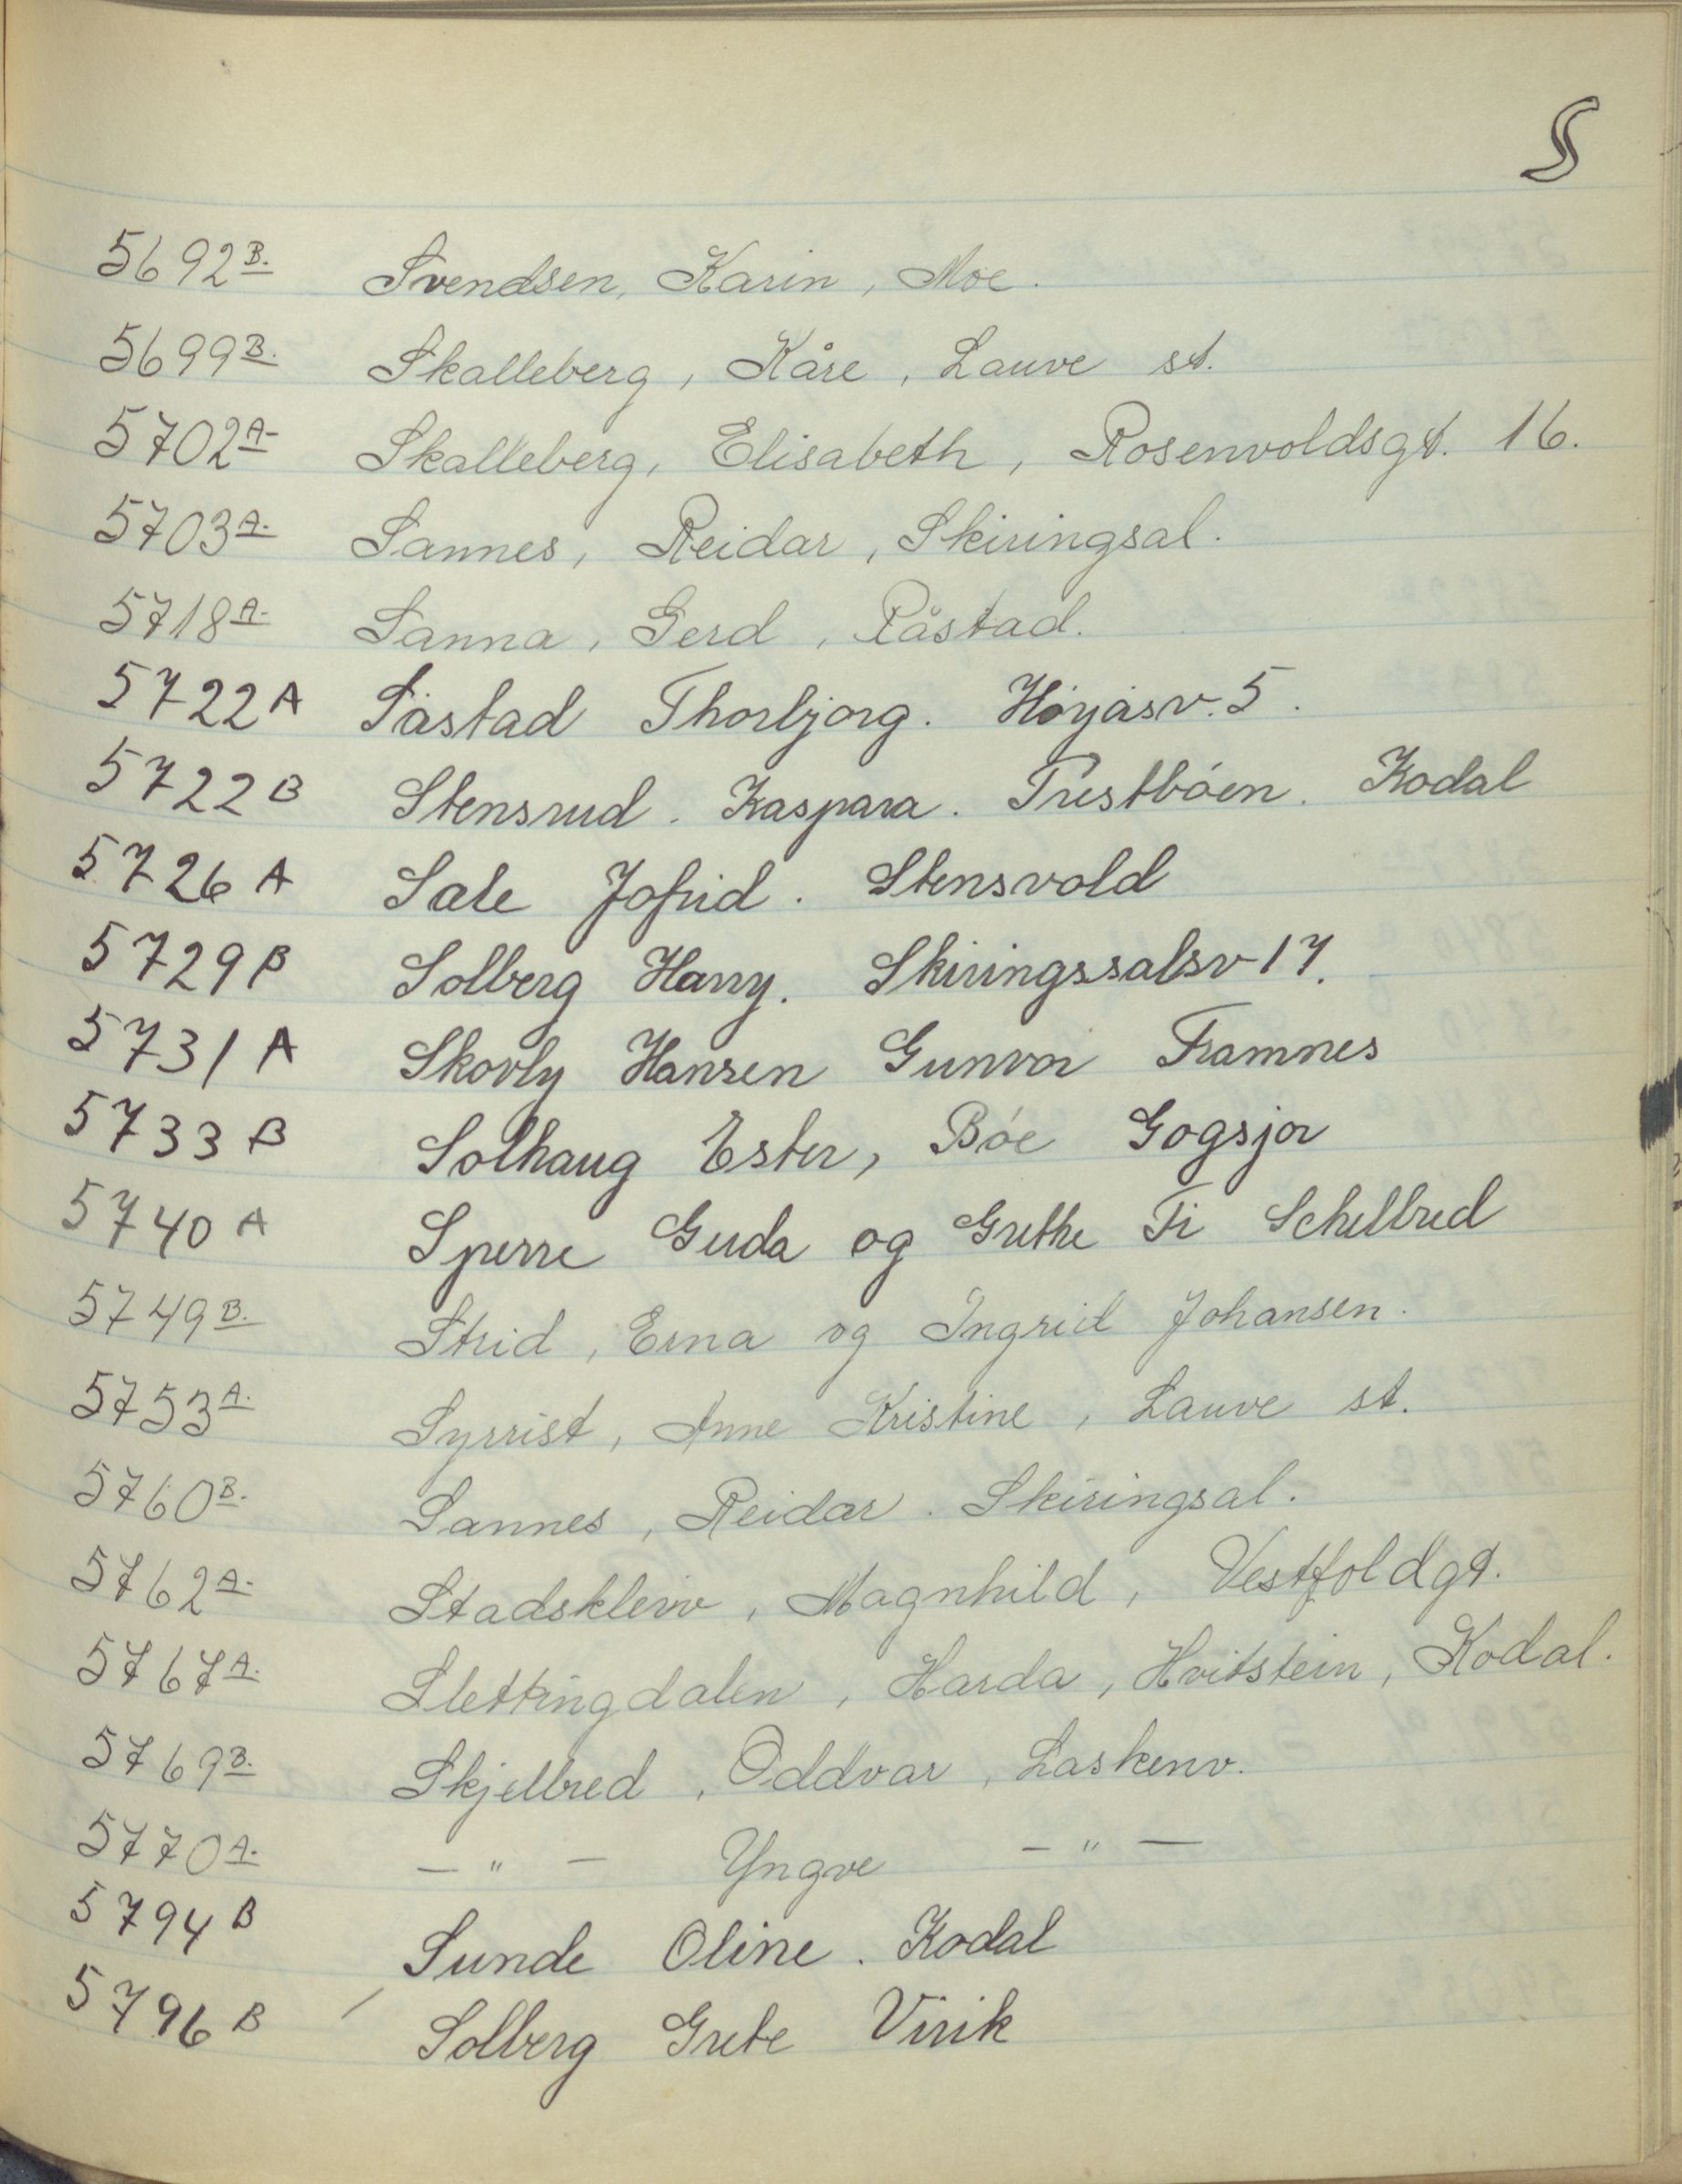 S
5692 B. Svendsen, Karin, Moe.
5699 B. Skalleberg, Kåre, Lauve st.
5702 A- Skalleberg, Elisabeth, Rosenvoldsgt. 16.
5703 A. Sannes, Reidar, Skiringsal.
5718 A. Sanna, Gerd, Råstad.
5722 A Såstad Thorbjørg. Høyåsv. 5.
5722 B Stensrud. Kaspara. Prestbøen. Kodal
5726 A Sale Jofrid. Stensvold
5729 B Solberg Harry. Skiringssalsv 17.
5731 A Skovly Hansen Gunvor Framnes
5733 B Solhaug Ester, Bøe Gogsjør
5740 A Sperre Guda og Grethe Fi Schelbred
5749 B. Strid, Erna og Ingrid Johansen.
5753 A. Syrrist, Anne Kristine, Lauve st.
5760 B. Sannes, Reidar. Skiringsal.
5762 A. Stadskleiv, Magnhild, Vestfoldgt.
5767 A. Slettingdalen, Harda, Hvitstein, Kodal.
5769 B. Skjelbred, Oddvar, Laskenv.
5770 A. — " — Yngve — " —
5794 B Sunde Oline. Kodal
5796 B / Solberg Grete Virik